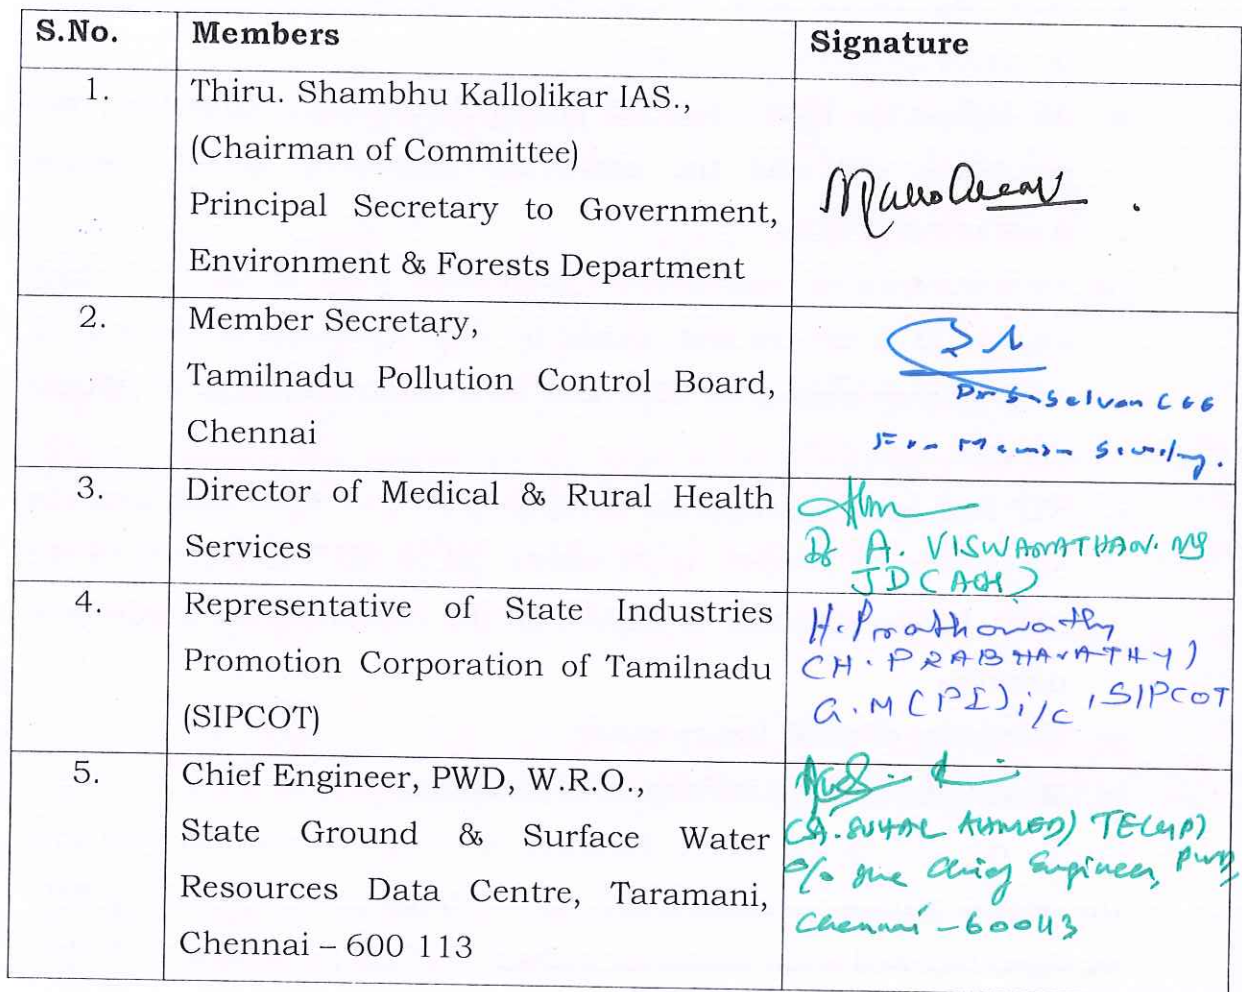 S.No. Members Signature
1. Thiru. Shambhu Kallolikar IAS.,
(Chairman of Committee)
Principal Secretary to Government,
Environment & Forests Department
2. Member Secretary,
Tamilnadu Pollution Control Board,
Chennai
Dr S. Selvan CEE
For Member Secretary.
3. Director of Medical & Rural Health
Services
Dr A. VISWANATHAN.
JD
4. Representative of State Industries
Promotion Corporation of Tamilnadu
(SIPCOT)
H. Prabhavathy
(H. PRABHAVATHY)
G.M (PI) i/c, SIPCOT
5. Chief Engineer, PWD, W.R.O.,
State Ground & Surface Water
Resources Data Centre, Taramani,
Chennai – 600 113
AHMED)
O/o the Chief Engineer, PWD,
Chennai - 600113